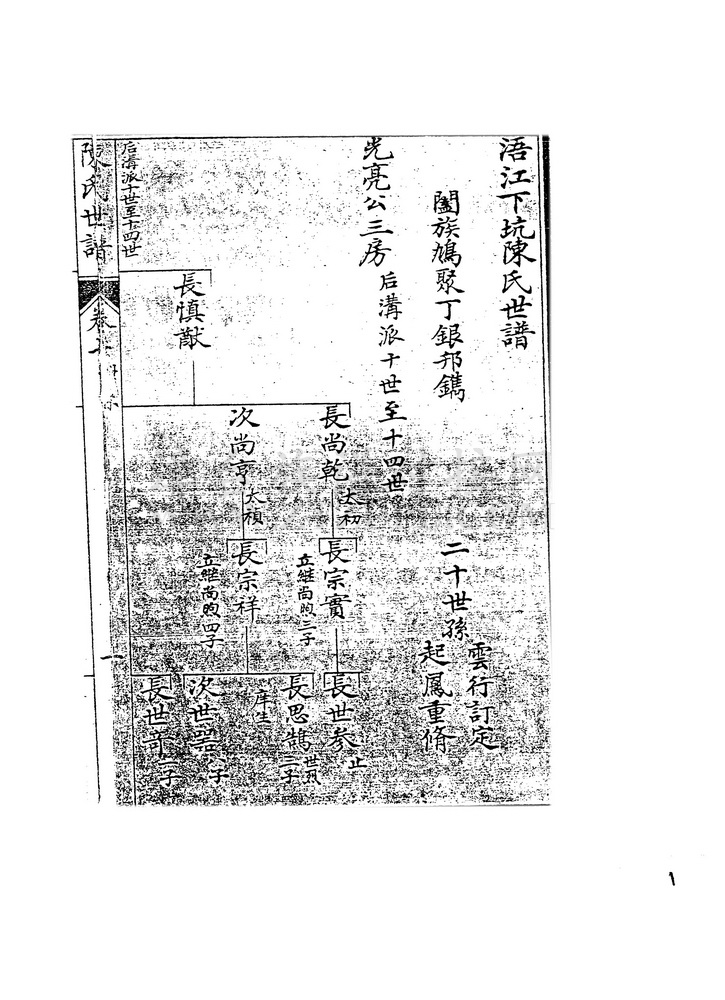 浯江下坑陳氏世譜
闔族鳩聚丁銀邦鐫
二十世孫
雲行訂定
起鳳重脩
光亮公三房
后溝派十世至十四世
長慎猷
長尚乾
太初
次尚亨
太禎
長宗實
立継尚煦三子
長宗祥
立継尚煦四子
長世參
止
長思鵠
世烈
二子
庠生
次世器
八子
長世奇
二子
后溝派十世至十四世
陳氏世譜
卷
一
1